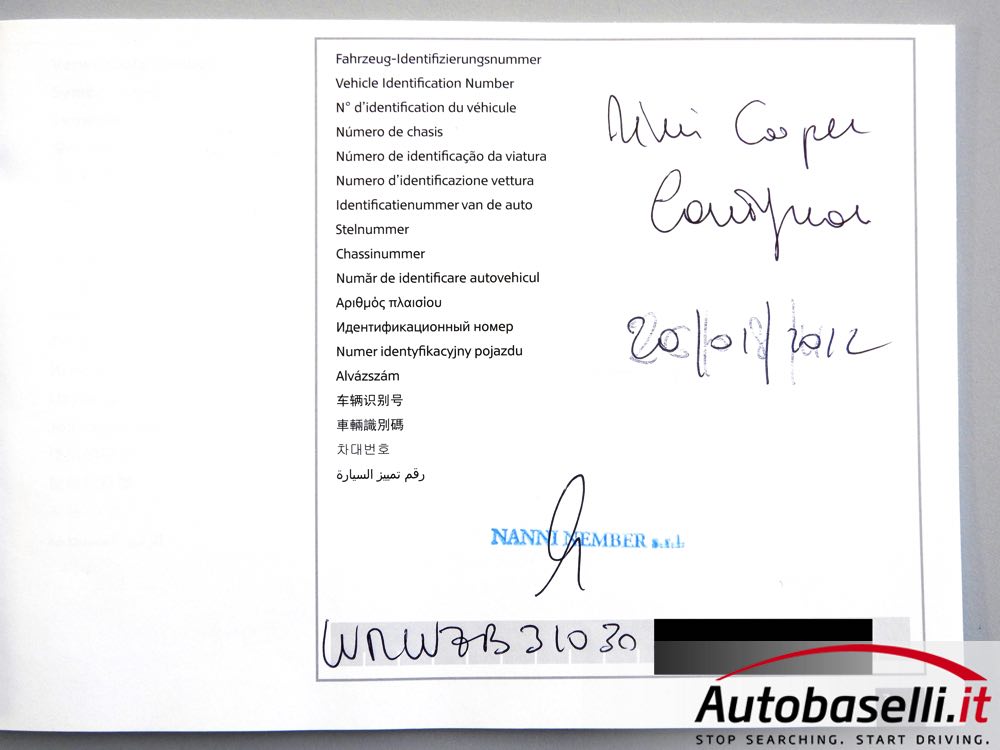 Fahrzeug-Identifizierungsnummer
Vehicle Identification Number
N° d'identification du véhicule
Número de chasis
Número de identificação da viatura
Numero d'identificazione vettura
Identificatienummer van de auto
Stelnummer
Chassinummer
Număr de identificare autovehicul
Αριθμός πλαισίου
Идентификационный номер
Numer identyfikacyjny pojazdu
Alvázszám
车辆识别号
車輛識別碼
차대번호
رقم تمييز السيارة
Mini Cooper
20/01/2012
NANNI NEMBER s.r.l.
WMWZB31030
Autobaselli.it
STOP SEARCHING. START DRIVING.